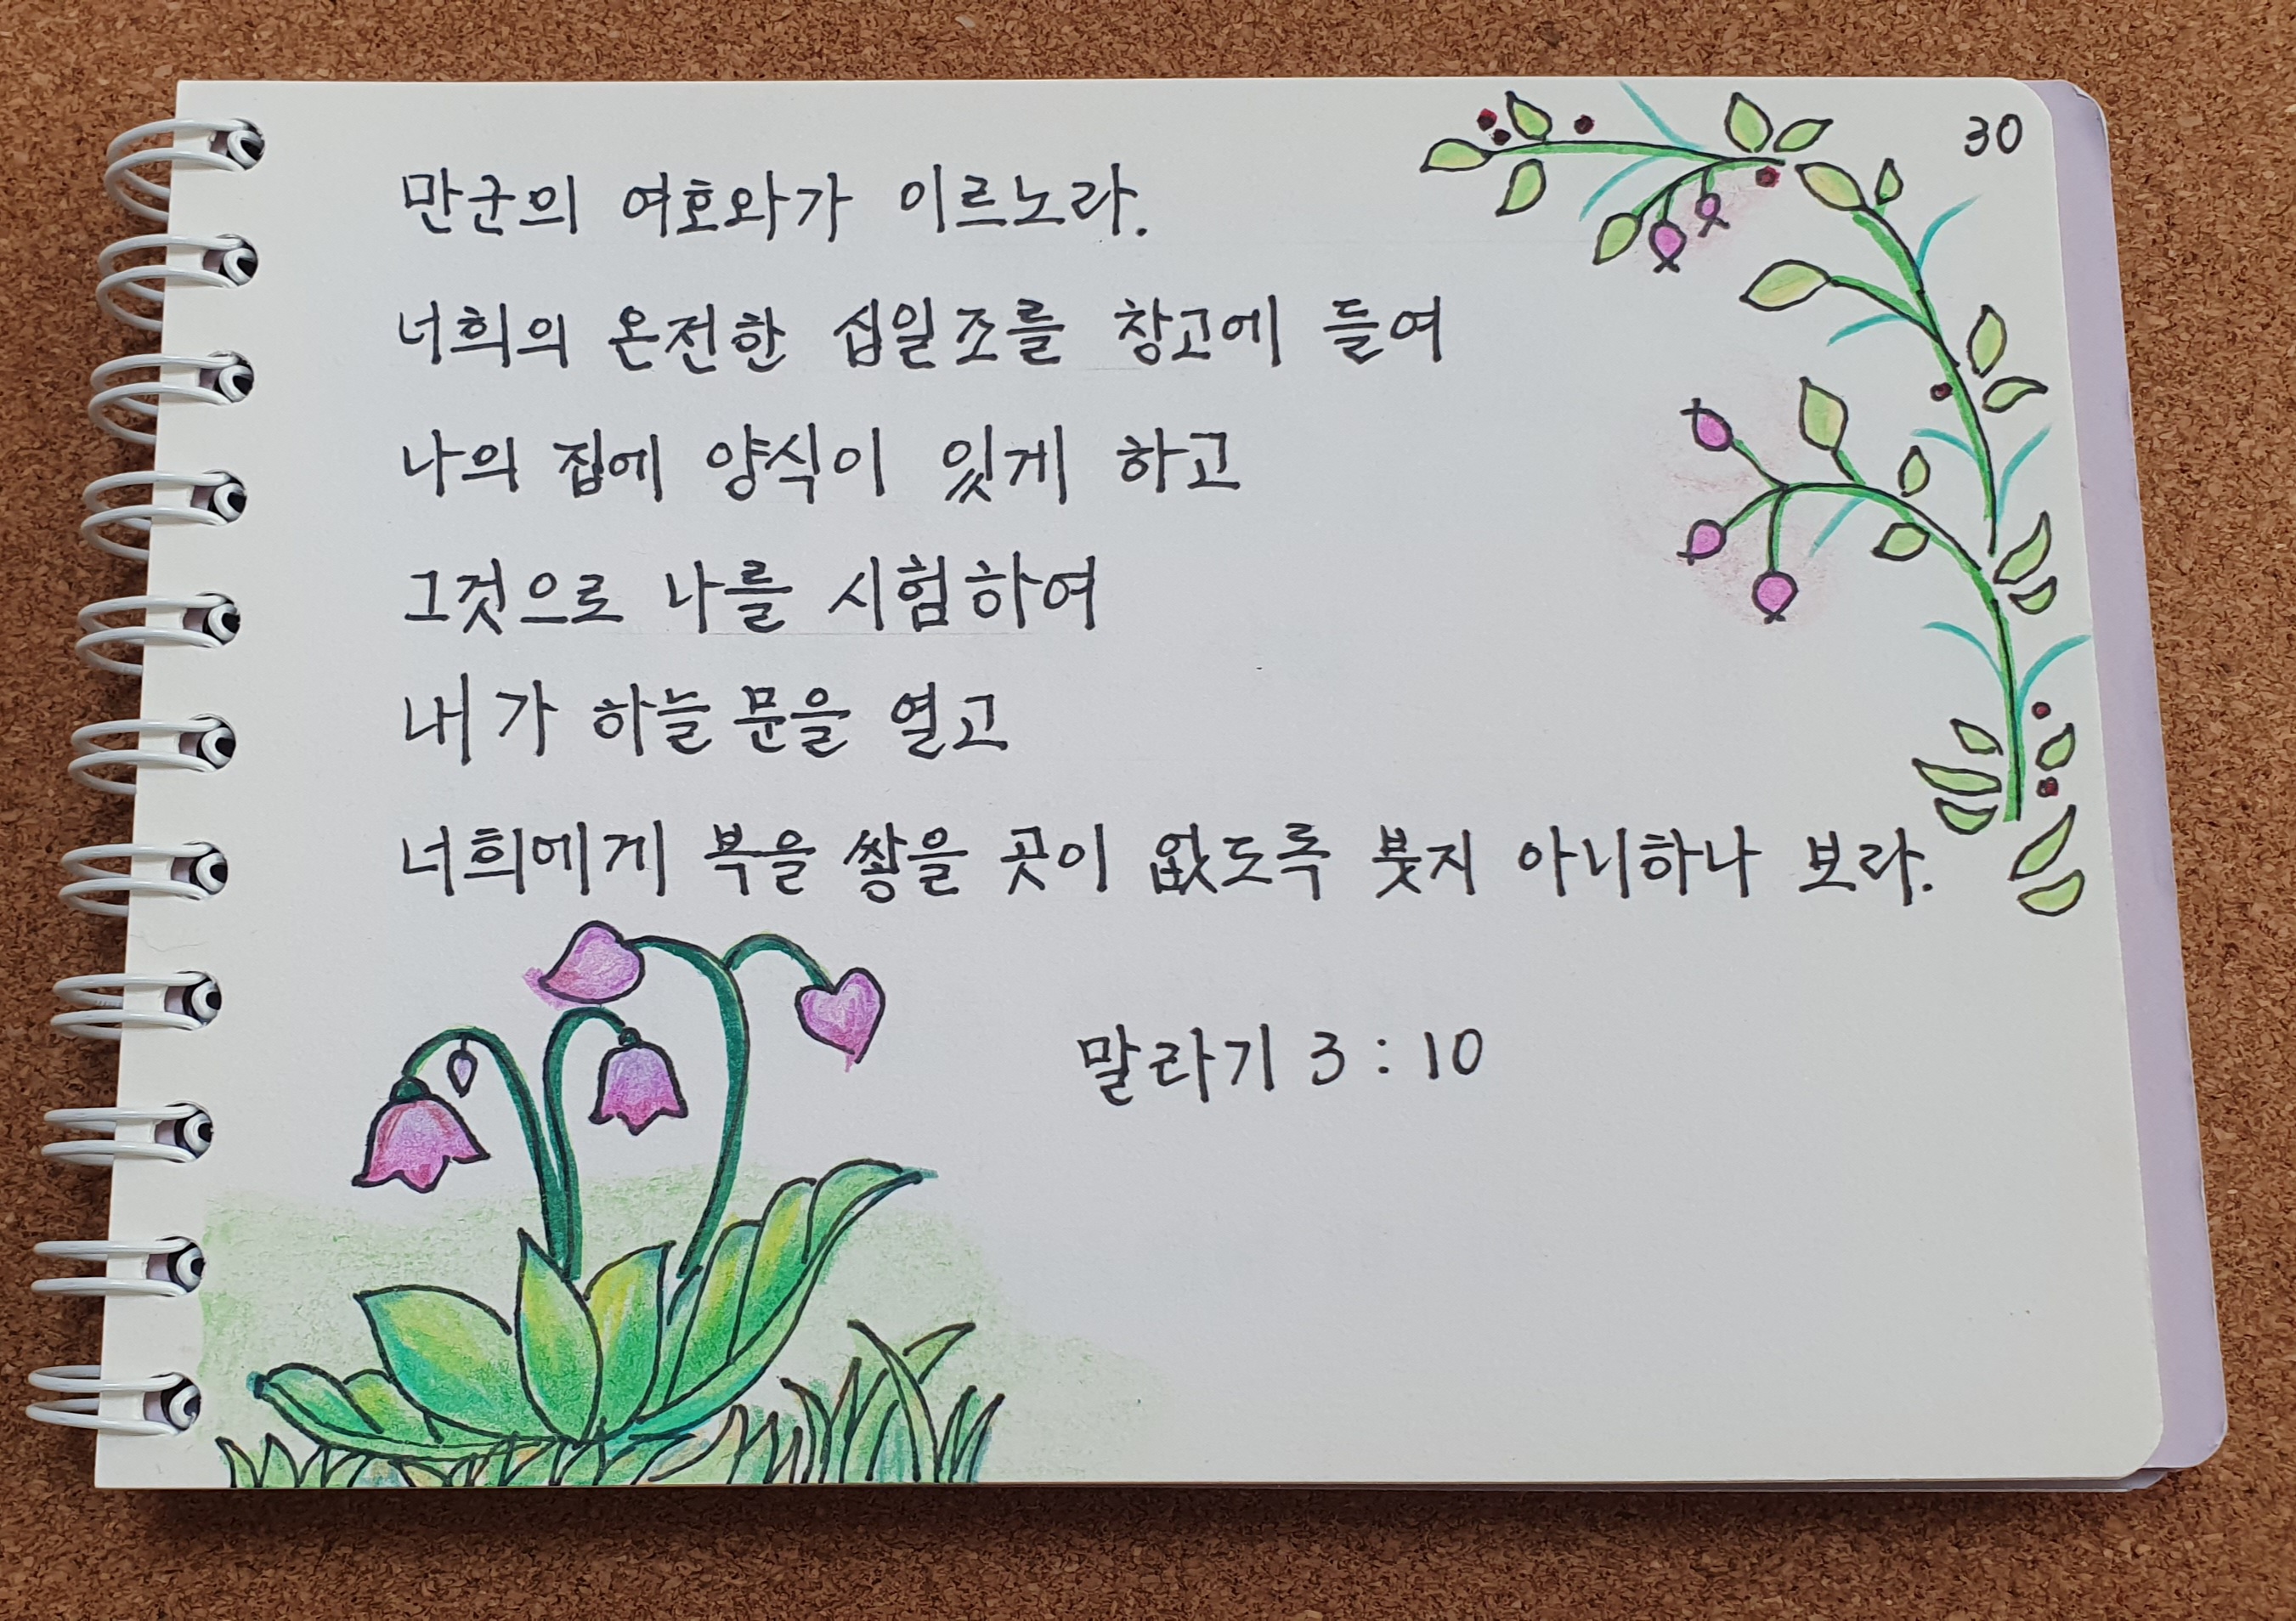 30
만군의 여호와가 이르노라.
너희의 온전한 십일조를 창고에 들여
나의 집에 양식이 있게 하고
그것으로 나를 시험하여
내가 하늘 문을 열고
너희에게 복을 쌓을 곳이 없도록 붓지 아니하나 보라.
말라기 3 : 10